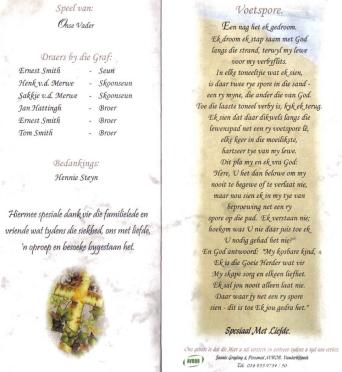 Speel van:
Onse Vader
Draers by die Graf:
Ernest Smith - Seun
Henk v.d. Merwe - Skoonseun
Sakkie v.d. Merwe - Skoonseun
Jan Hattingh - Broer
Ernest Smith - Broer
Tom Smith - Broer
Bedankings:
Hennie Steyn
Hiermee spesiale dank vir die familielede en
vriende wat tydens die siekbed, ons met liefde,
'n oproep en besoeke bygestaan het.
Voetspore.
Een nag het ek gedroom.
Ek droom ek stap saam met God
langs die strand, terwyl my lewe
voor my verbyflits.
In elke toneeltjie wat ek sien,
is daar twee rye spore in die sand -
een ry myne, die ander die van God.
Toe die laaste toneel verby is, kyk ek terug.
Ek sien dat daar dikwels langs die
lewenspad net een ry voetspore lê,
elke keer in die moeilikste,
hartseer tye van my lewe.
Dit pla my en ek vra God:
Here, U het dan belowe om my
nooit te begewe of te verlaat nie,
maar nou sien ek in my tye van
beproewing net een ry
spore op die pad. Ek verstaan nie;
hoekom was U nie daar juis toe ek
U nodig gehad het nie?"
En God antwoord: "My kosbare kind,
Ek is die Goeie Herder wat vir
My skape sorg en elkeen liefhet.
Ek sal jou nooit alleen laat nie.
Daar waar jy net een ry spore
sien - dit is toe Ek jou gedra het."
Spesiaal Met Liefde.
AVBOB
Tel: 016 933 9734 / 50